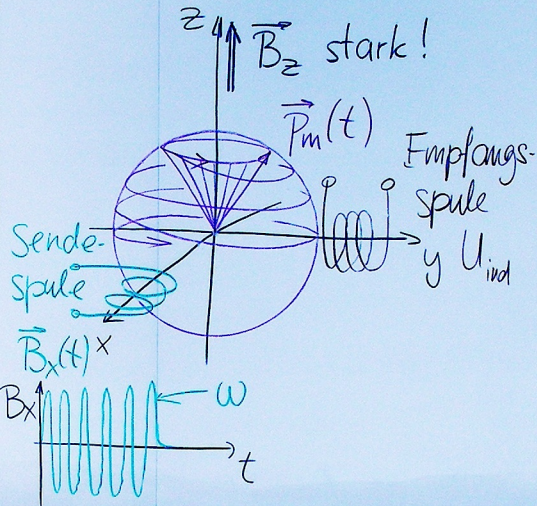 z
B⃗z stark!
P⃗m(t)
Empfangs-
spule
y Uind
Sende-
spule
x
B⃗x(t)
Bx
ω
t